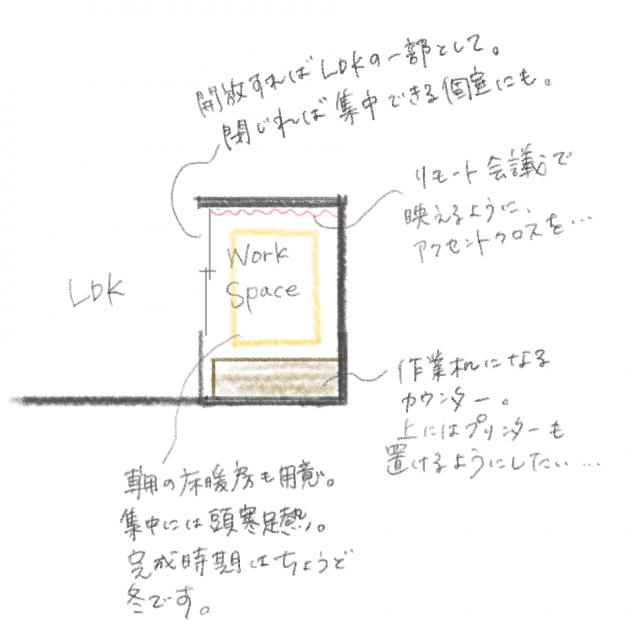 開放すればLDKの一部として。
閉じれば集中できる個室にも。
リモート会議で
映えるように、
アクセントクロスを…
Work
Space
LDK
作業机になる
カウンター。
上にはプリンターも
置けるようにしたい…
専用の床暖房も用意。
集中には頭寒足熱。
完成時期はちょうど
冬です。